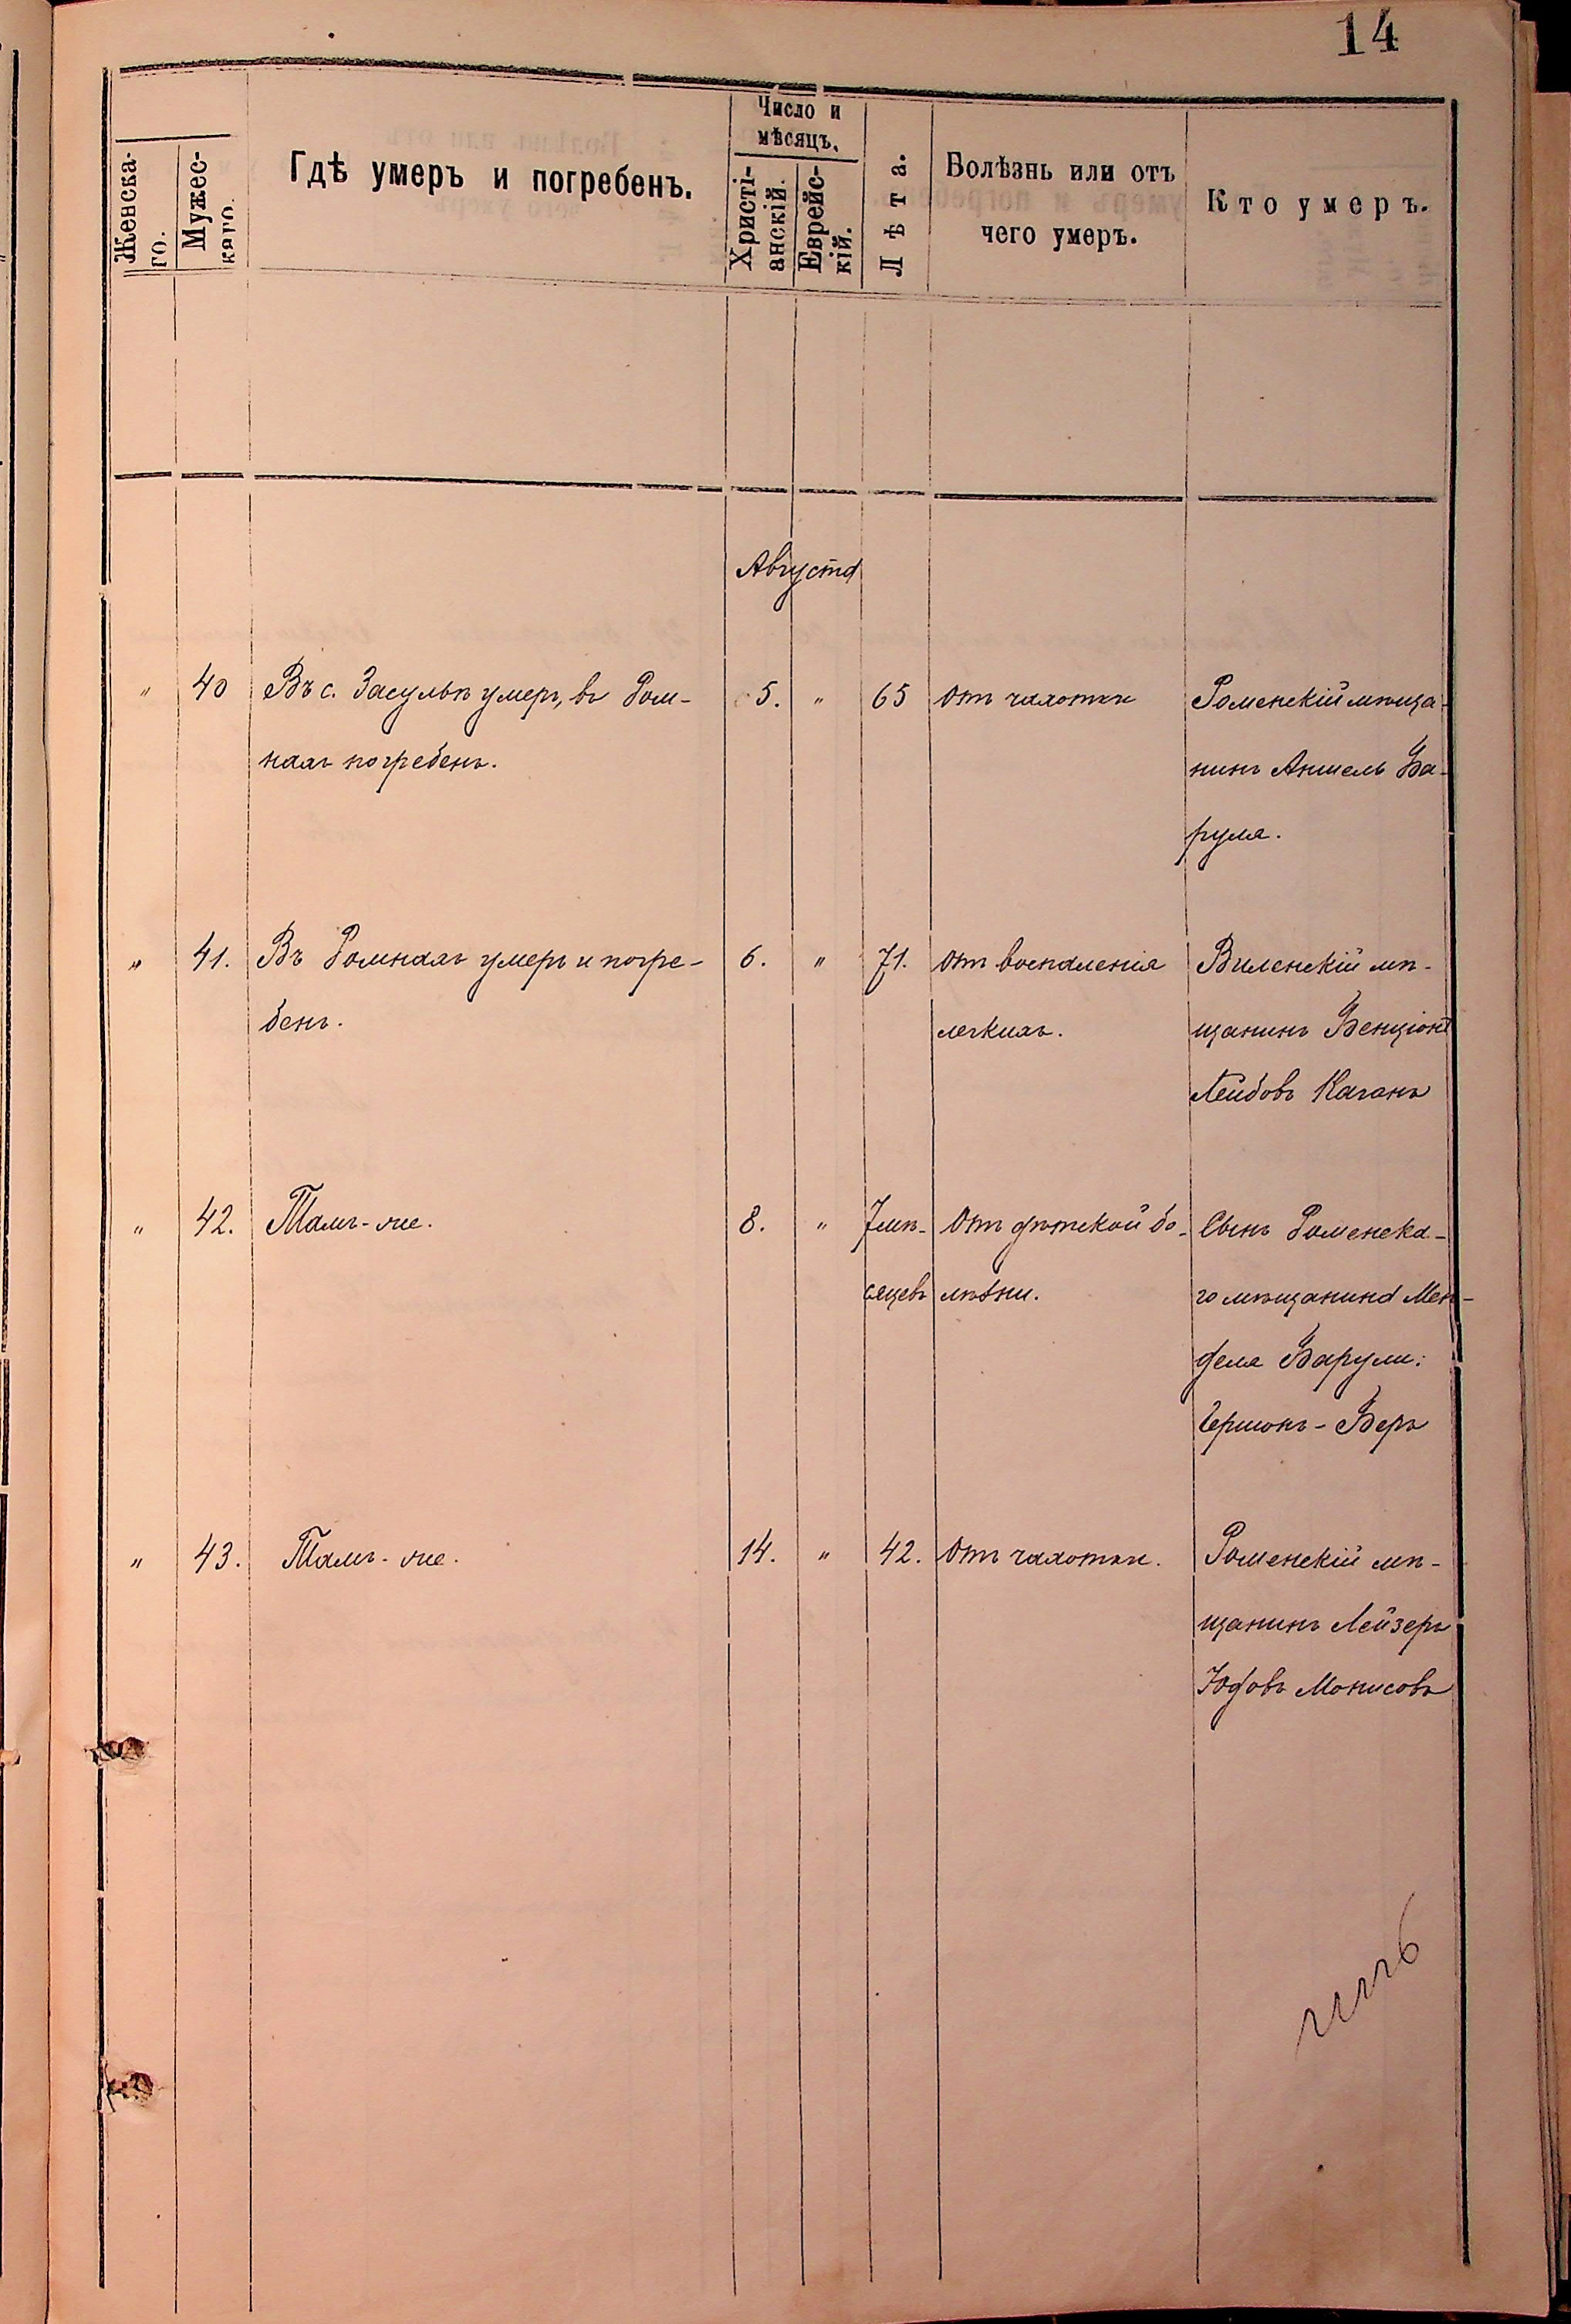 14
Женска-
го.
Мужес-
каго.
Гдѣ умеръ и погребенъ.
Число и
мѣсяцъ.
Христі-
анскій.
Еврейс-
кій.
Лѣта.
Болѣзнь или отъ
чего умеръ.
Кто умеръ.
Августа
" 40 Въ с. Засульѣ умеръ, въ Ром- 5. " 65 Отъ чахотки Роменскій мѣща-
нахъ погребенъ. нинъ Аншель Ба-
руля.
" 41. Въ Ромнахъ умеръ и погре- 6. " 71. Отъ воспаленія Виленскій мѣ-
бенъ. легкихъ. щанинъ Бенціонъ
Лейбовъ Каганъ
" 42. Тамъ-же. 8. " 7 мѣ- Отъ дѣтской бо- Сынъ Роменска-
сяцевъ лѣзни. го мѣщанина Мен-
деля Барули:
Гершонъ-Беръ
" 43. Тамъ-же. 14. " 42. Отъ чахотки. Роменскій мѣ-
щанинъ Лейзеръ
Юдовъ Монисовъ